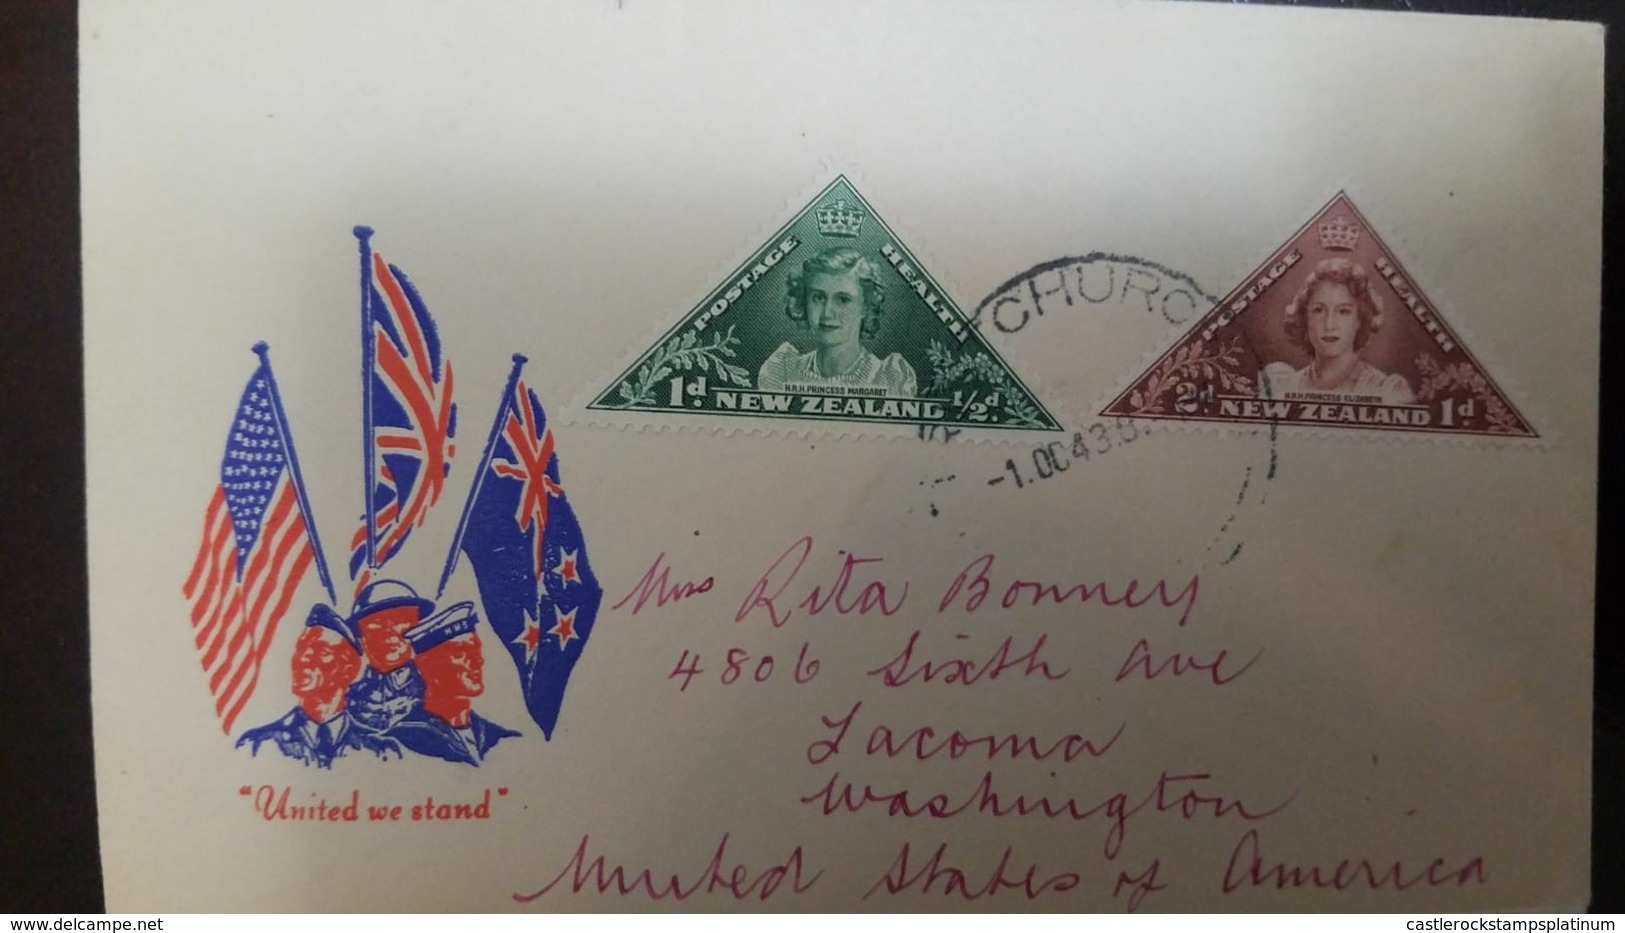 POSTAGE HEALTH
H.R.H. PRINCESS MARGARET
1d. NEW ZEALAND 1/2d.
POSTAGE HEALTH
H.R.H. PRINCESS ELIZABETH
2d. NEW ZEALAND 1d
CHURC
-1.OC43
HMS
"United we stand"
Mrs Rita Bonney
4806 Sixth Ave
Tacoma
Washington
United States of America
delcampe.net
castlerockstampsplatinum